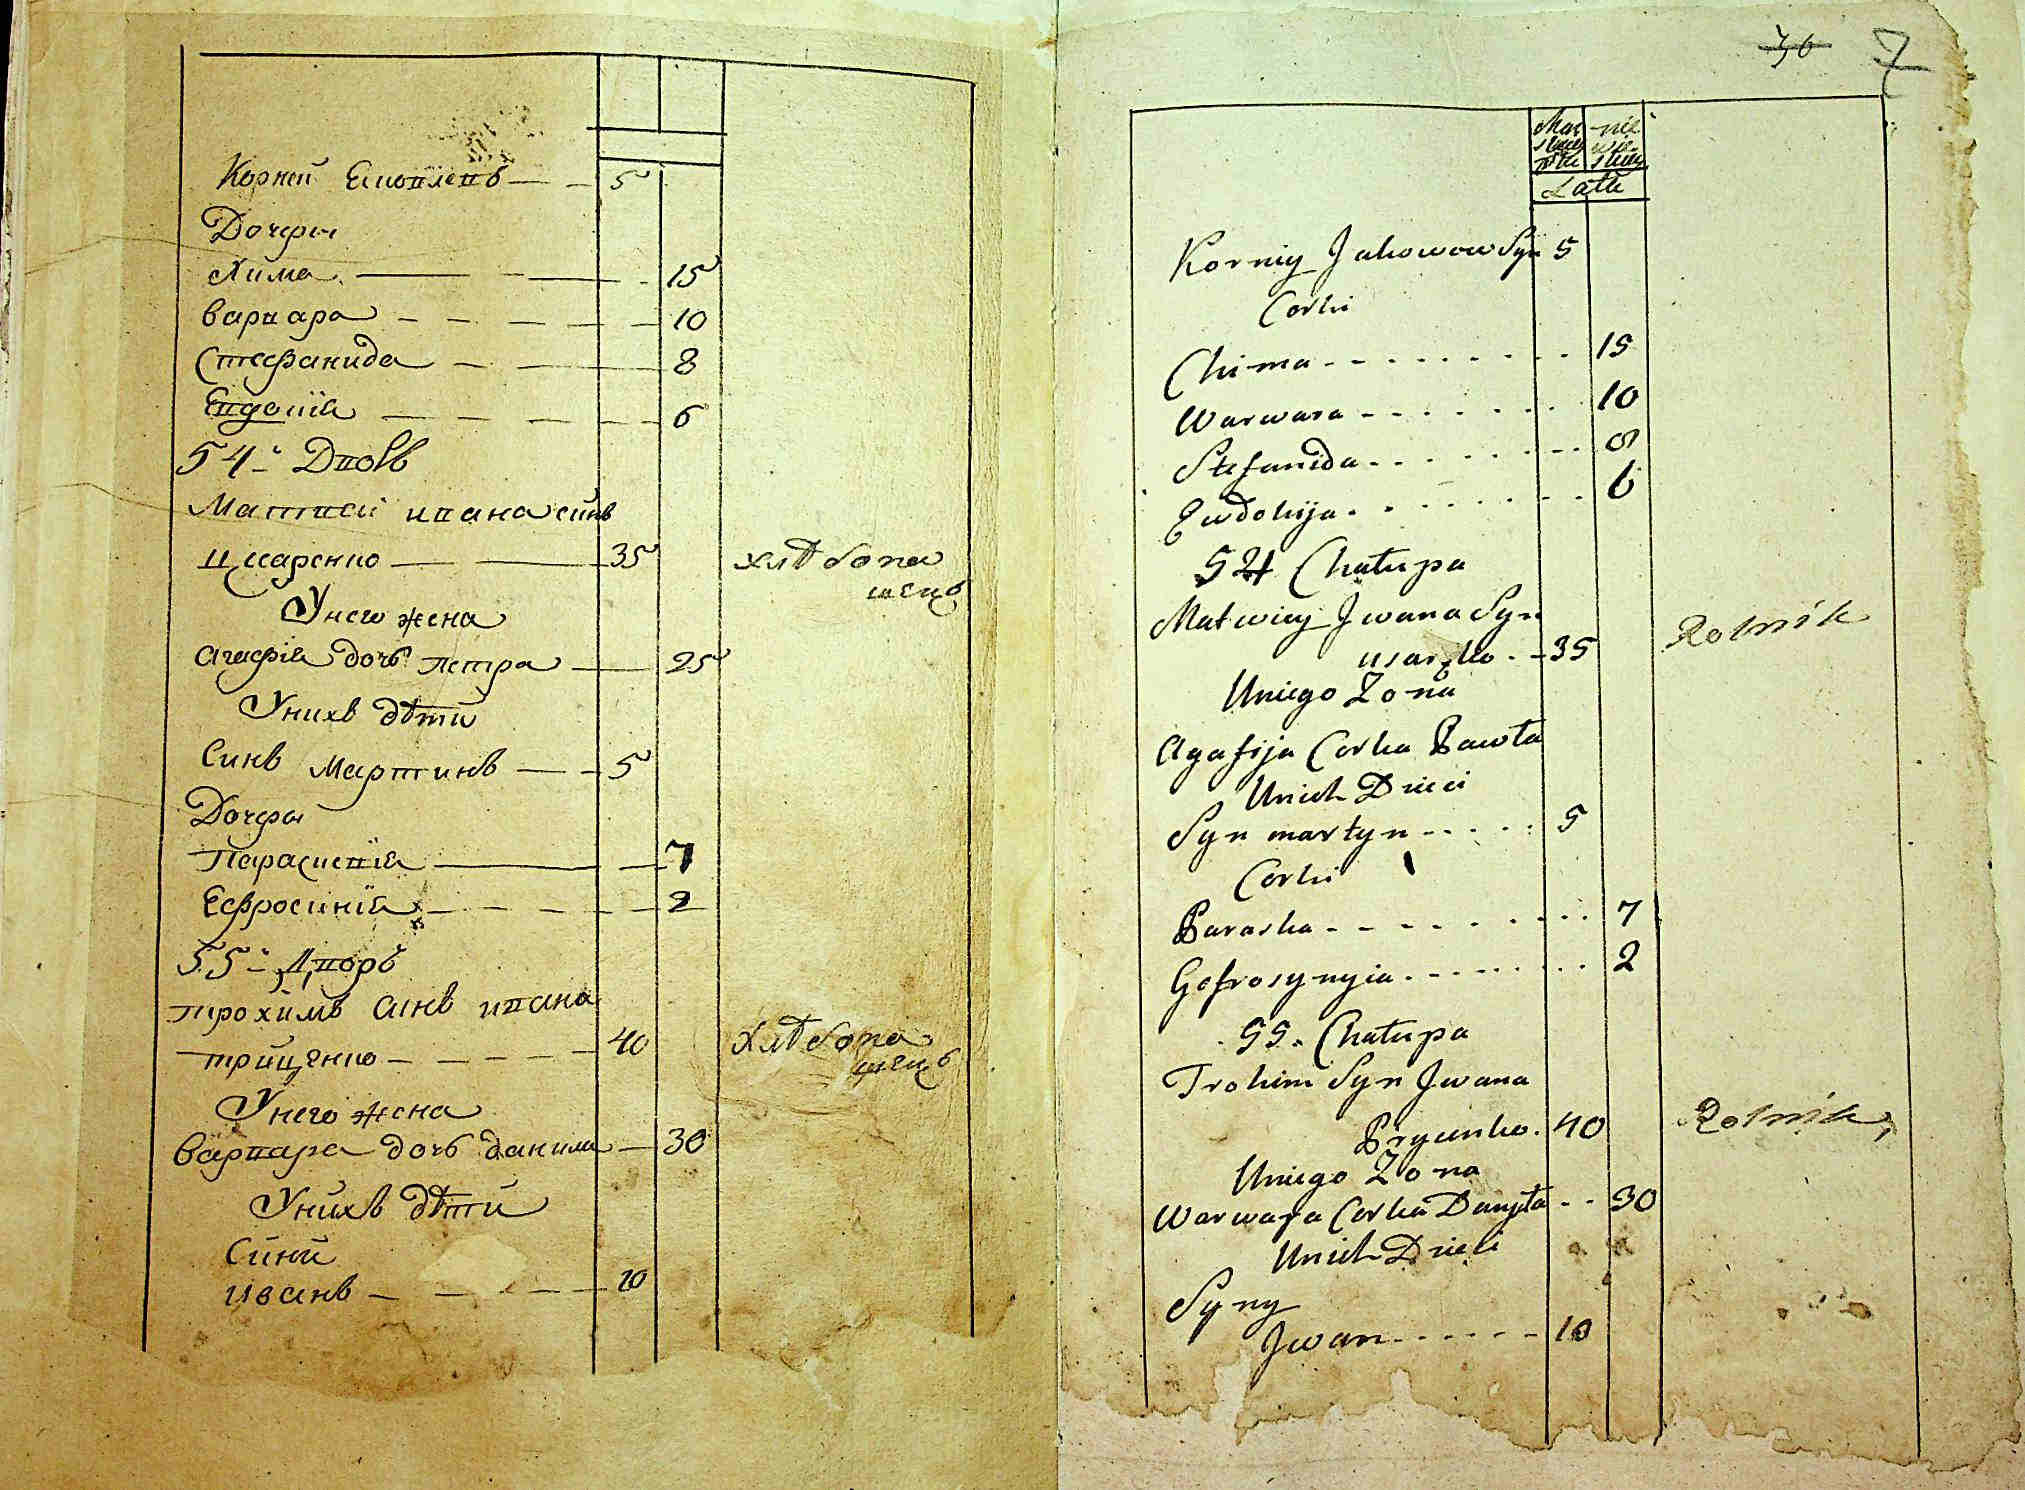 Корней Еиковлевъ — — 5
Дочери
Хима — — — 15
варвара — — — — 10
Стефанида — — 8
Евдокія — — — 6
54-й Дворъ
Матвей ивана синъ
— — 35 хлѣбопа
шецъ
У него жена
агафія дочь петра — 25
У нихъ дѣти
Синъ Мартинъ — — 5
Дочери
Параскевія — — 7
Ефросинія — — — — 2
55-й Дворъ
трохимъ синъ ивана
грищенко — — — — 40 Хлѣбопа
шецъ
У него жена
варвара дочь данила — 30
У нихъ дѣти
Сини
иванъ — — — — 10
36 7
Lata
Korniy Jakowow Syn 5
Corki
Chima - - - - - - - - 15
Warwara - - - - - - - 10
Stefanida - - - - - - - 8
Ewdokija - - - - - - - 6
54 Chałupa
Matwiey Jwana Syn
- 35 Rolnik
Uniego Zona
Agafija Corka Pawła
Unich Dzieci
Syn martyn - - - - - 5
Corki
Paraska - - - - - - - - 7
Gefrosynyia - - - - - - - 2
55. Chałupa
Trohim Syn Jwana
40 Rolnik
Uniego Zona
Warwara Corka Danyła - - 30
Unich Dzieci
Syny
Jwan - - - - - - 10